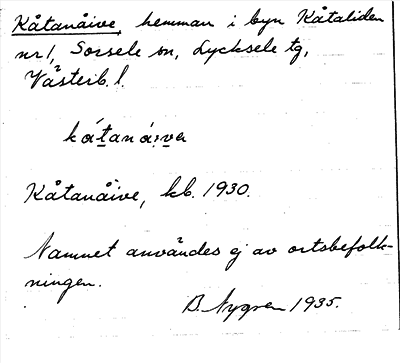 Kåtanåive, hemman i byn Kåtaliden
nr 1, Sorsele sn, Lycksele tg,
Västerb. l.
kátaná:vɐ
Kåtanåive, kb. 1930.
Namnet användes ej av ortsbefolk-
ningen.
B. Nygren 1935.